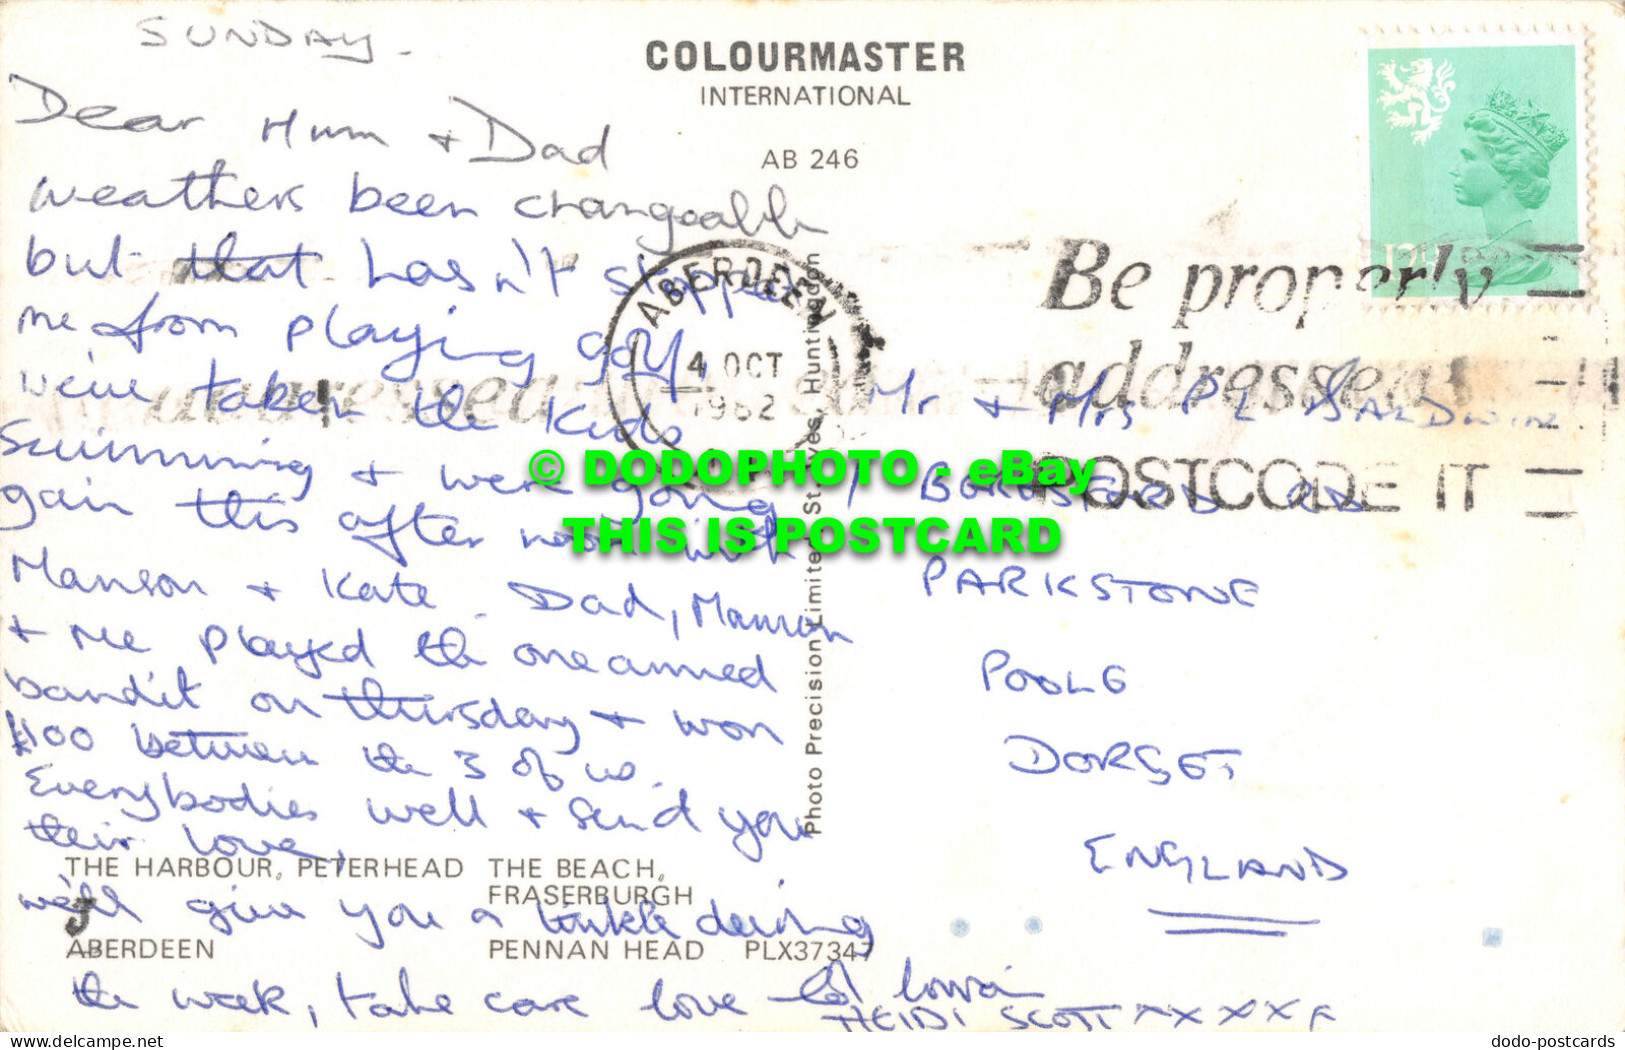 SUNDAY -
Dear Mum + Dad
weathers been changeable
but that hasn't stopped
me from playing golf,
we've taken the kids
swimming + were going
gain this after noon with
Manson + Kate. Dad, Manson
+ me played the onearmed
bandit on thursday + won
£100 between the 3 of us.
Everybodies well + send you
their love,
we'll give you a tinkle during
the week, take care love
HEIDI SCOTT XXXXX
COLOURMASTER
INTERNATIONAL
AB 246
ABERDEEN
4 OCT
1982
Be properly
addressed
POSTCODE IT
Mr + Mrs P L BALDWIN
PARKSTONE
POOLE
DORSET
ENGLAND
© DODOPHOTO - eBay
THIS IS POSTCARD
Photo Precision Limited, St. Ives, Huntingdon
THE HARBOUR, PETERHEAD THE BEACH,
FRASERBURGH
ABERDEEN PENNAN HEAD PLX37347
dodo-postcards